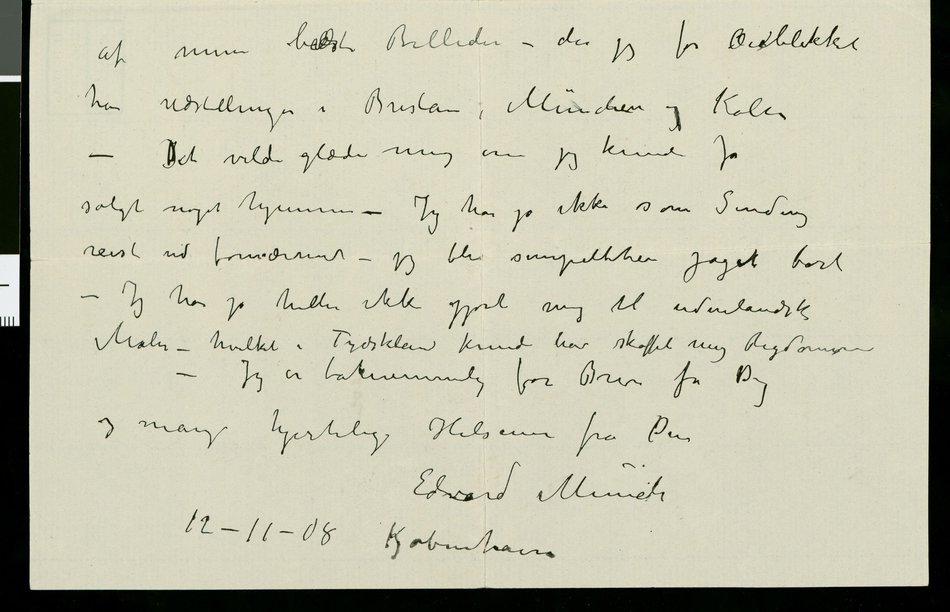 af mine bedste Billeder – da jeg for Øieblikket
har udstillinger i Breslau, München og Kølen
– Det vilde glæde mig om jeg kunde få
solgt noget hjemme – Jeg har jo ikke som Sinding
reist ud fornærmet – jeg blev simpelthen jaget bort
– Jeg har jo heller ikke gjort mig til udenlandsk
Maler – hvilket i Tydskland kunde har skaffet mig Rigdomme
– Jeg er taknemmelig for Breve fra Dig
og mange hjertelige Hilsener fra Din
Edvard Munch
12–11–08 Kjøbenhavn